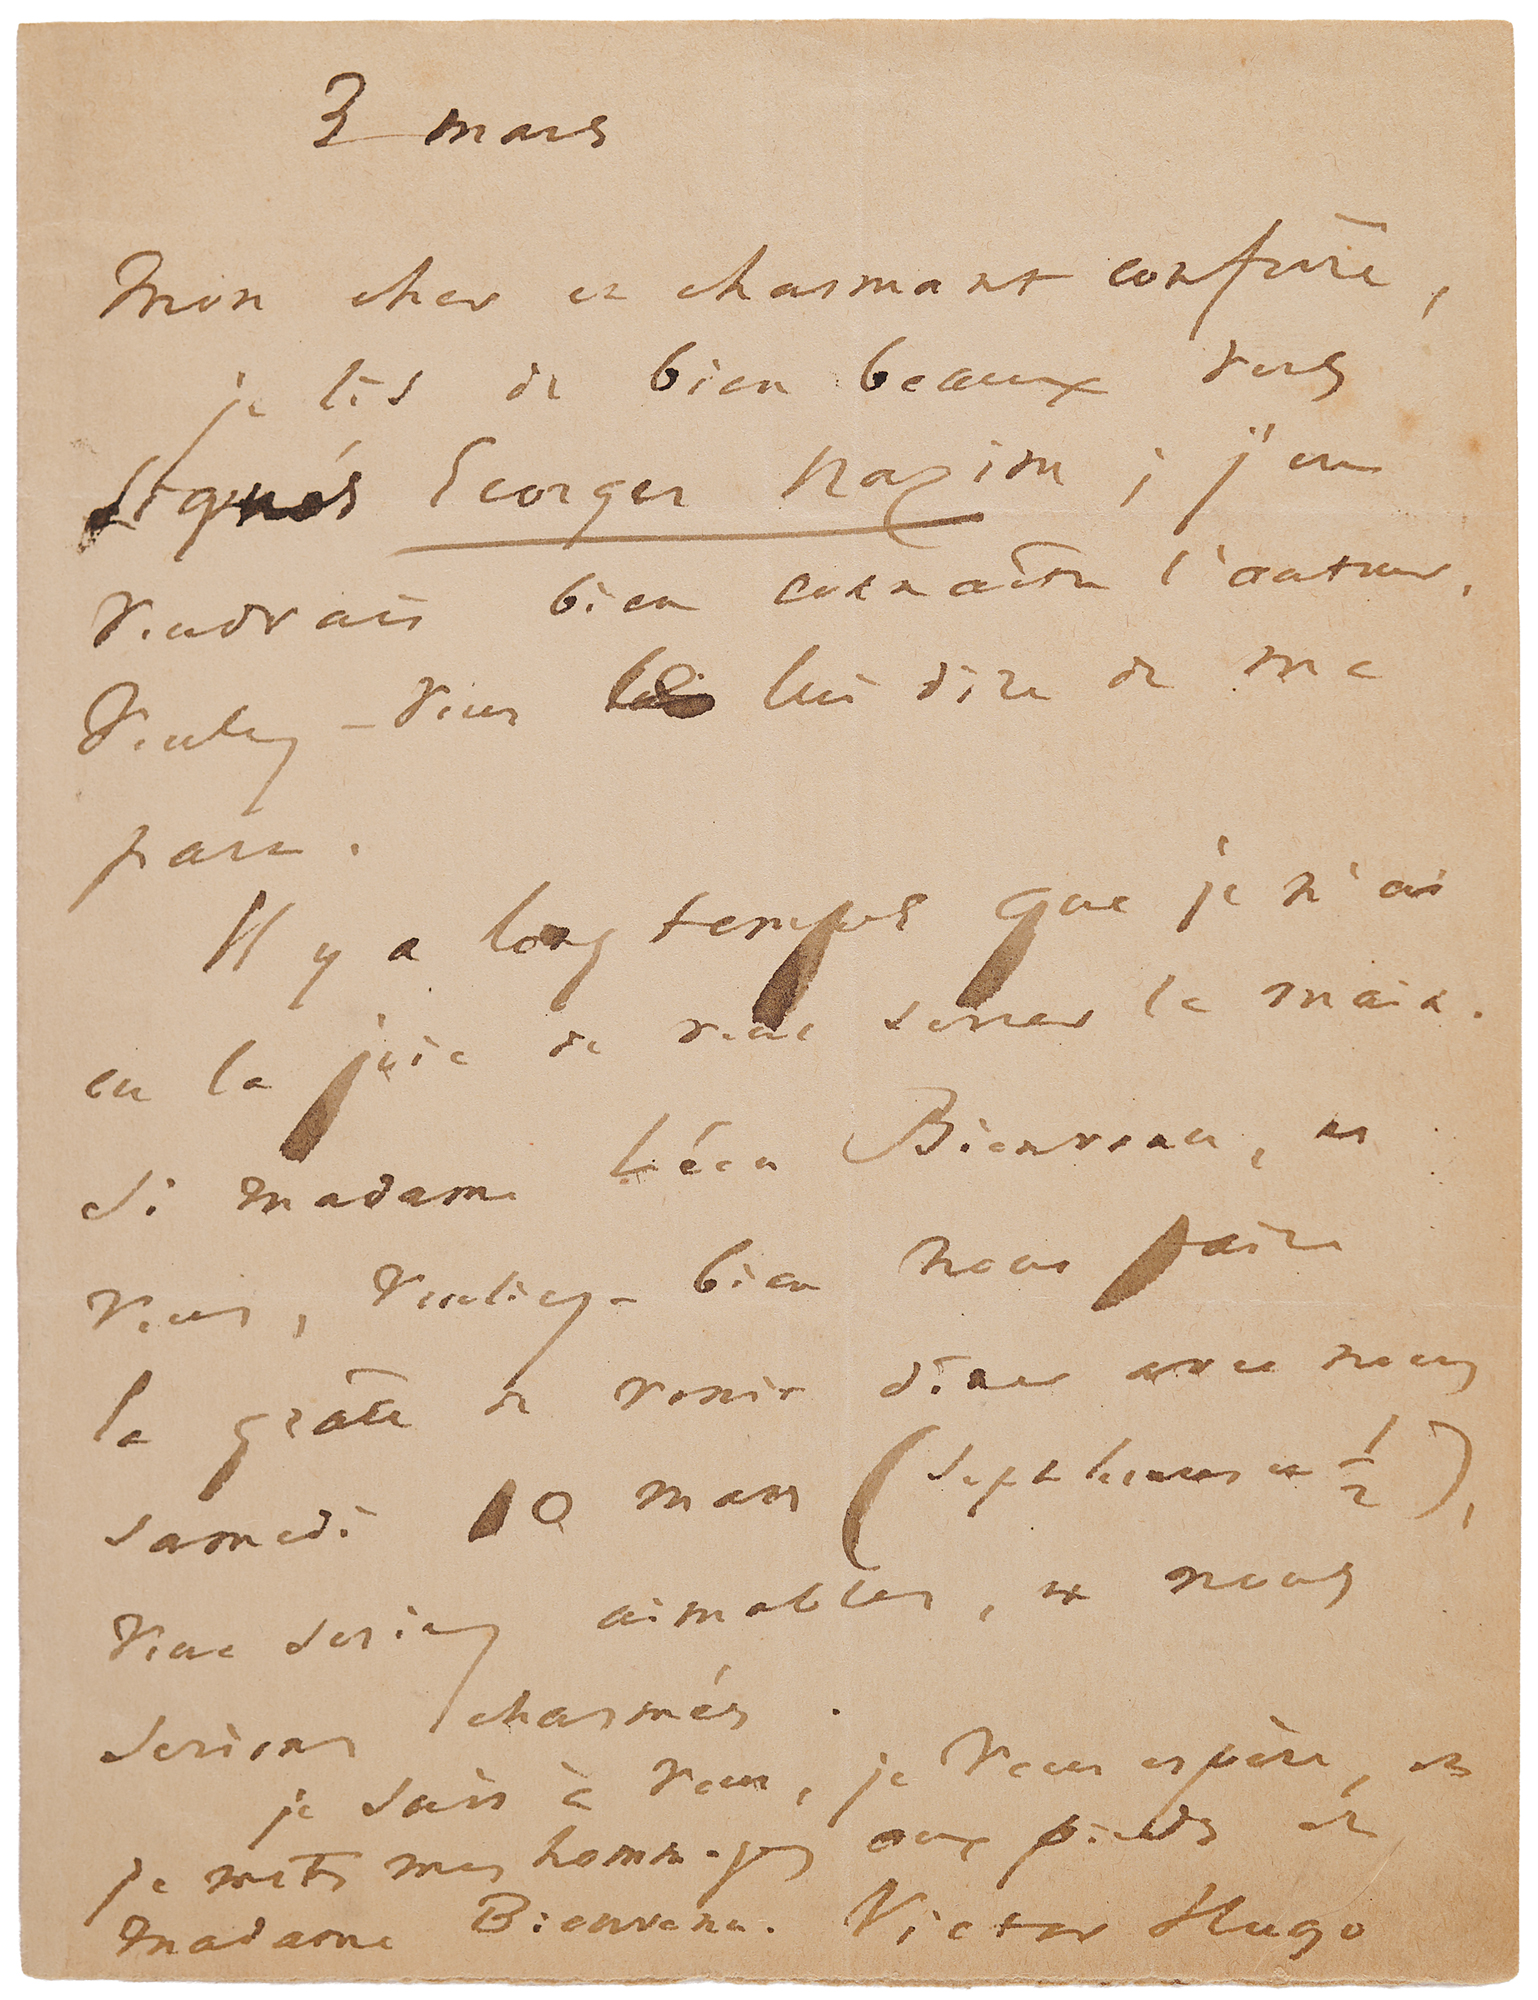 3 mars
Mon cher et charmant confrère,
je lis de bien beaux vers
signés Georges Nazim ; j'en
voudrais bien connaître l'auteur.
Voulez-vous lui dire de ma
part.
Il y a longtemps que je n'ai
eu la joie de vous serrer la main.
Si madame Léon Bienvenu, et
vous, vouliez-bien nous faire
la grâce de venir dîner avec nous
samedi 10 mars (sept heures et 1/2),
vous seriez aimables, et nous
serions charmés.
je suis à vous, je vous espère, et
je mets mes hommages aux pieds de
madame Bienvenu. Victor Hugo